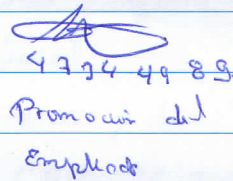 4734 49 89
Promoción del
Empleado